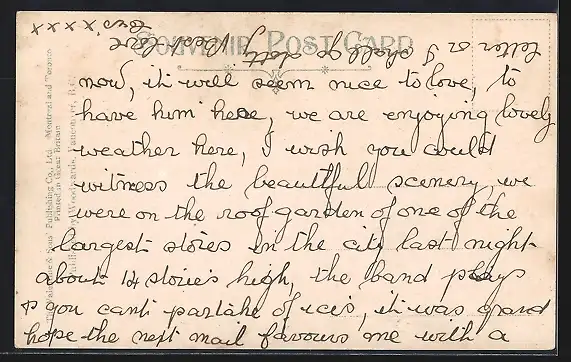 SOUVENIR POST CARD
now, it will seem nice to love, to
have him here, we are enjoying lovely
weather here, I wish you could
witness the beautiful scenery, we
were on the roof garden of one of the
largest stores in the city last night
about 14 stories high, the band plays
& you can't partake of ices, it was grand
hope the next mail favours me with a
letter or I shall be dotty Best love
xxxxx
& Sons' Publishing Co., Ltd. Montreal and Toronto
Printed in Great Britain
Woodwards, Vancouver, B.C.